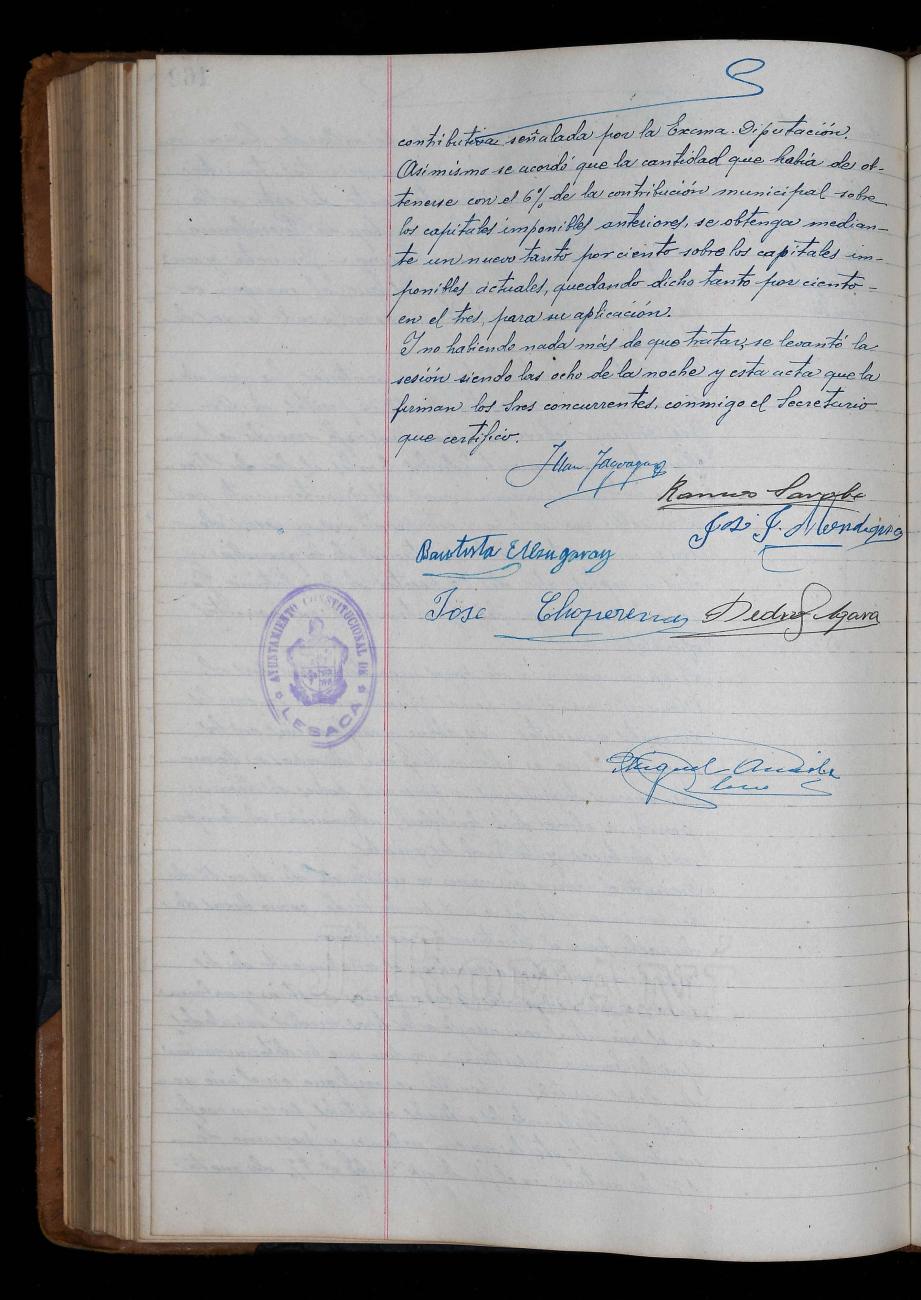 contributiva señalada por la Excma. Diputación.
Asimismo se acordó que la cantidad que había de ob-
tenerse con el 6% de la contribución municipal sobre
los capitales imponibles anteriores, se obtenga median-
te un nuevo tanto por ciento sobre los capitales im-
ponibles actuales, quedando dicho tanto por ciento -
en el tres, para su aplicación.
Y no habiendo nada más de que tratar, se levantó la
sesión siendo las ocho de la noche y esta acta que la
firman los Sres concurrentes, conmigo el Secretario
que certifico.
Ramon Sarobe
José J. Mendigorria
Bautista
Jose Choperena Pedro
AYUNTAMIENTO CONSTITUCIONAL DE
LESACA
Miguel